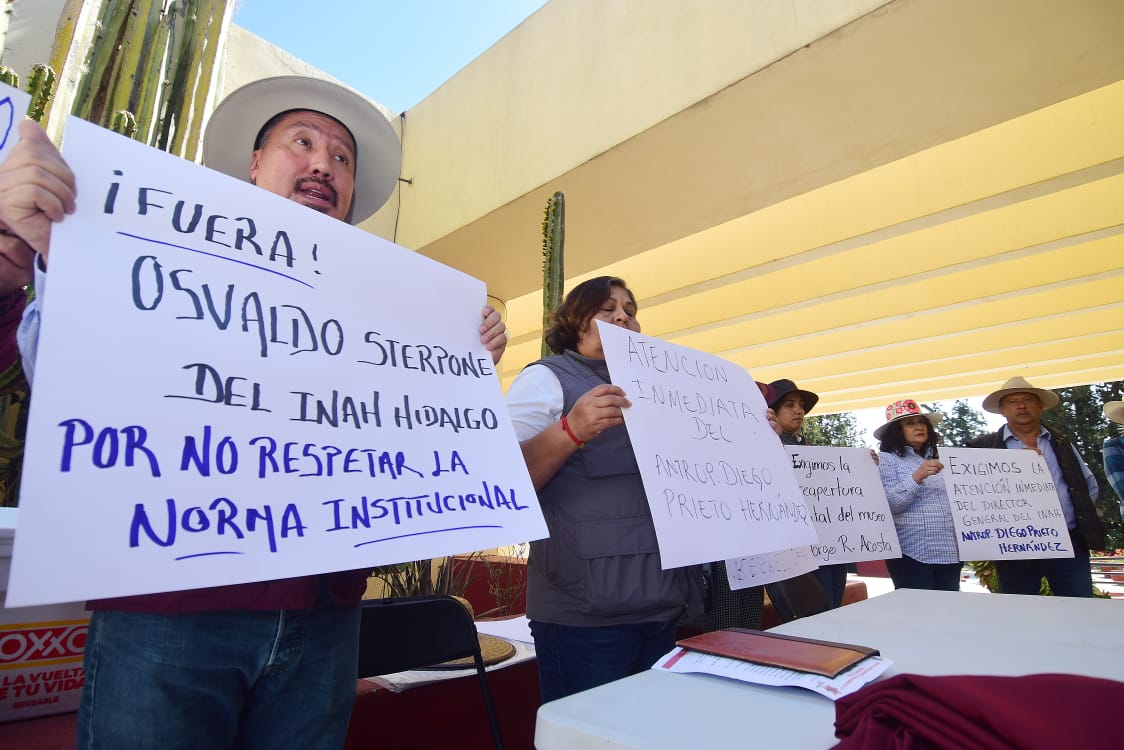 ¡FUERA!
OSVALDO STERPONE
DEL INAH HIDALGO
POR NO RESPETAR LA
NORMA INSTITUCIONAL
ATENCIÓN
INMEDIATA
DEL
ANTROP. DIEGO
PRIETO HERNÁNDEZ
Exigimos la
reapertura
del museo
Jorge R. Acosta
EXIGIMOS LA
ATENCIÓN INMEDIATA
DEL DIRECTOR
GENERAL DEL INAH
ANTROP. DIEGO PRIETO
HERNÁNDEZ
OXXO
LA VUELTA
DE TU VIDA
REUSABLE